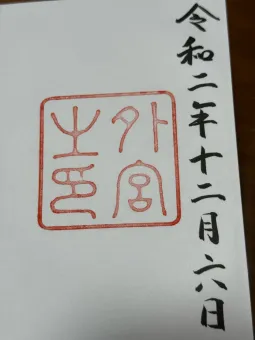 令和二年十二月六日
外宮
之印